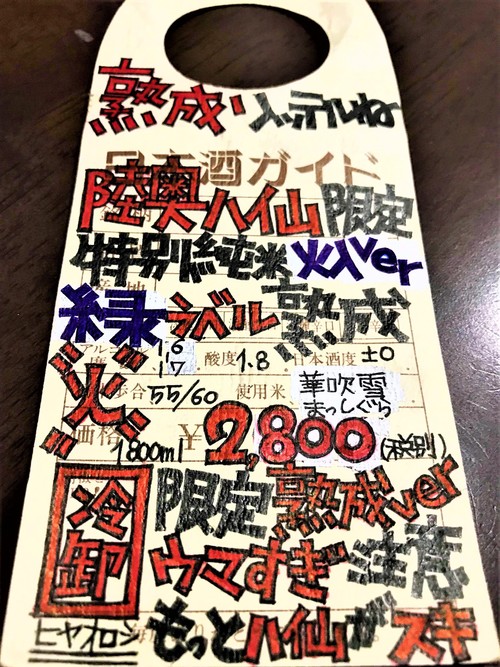 熟成 入ッテルね
日本酒ガイド
陸奥ハ仙 限定
特別純米 火入ver
緑ラベル 熟成
アルコール度 16 17 酸度 1.8 日本酒度 ±0
火 歩合 55/60 使用米 華吹雪 まっしぐら
価格 1800ml ¥2,800 (税別)
冷卸 限定熟成ver
ウマすぎ注意
ヒヤオロシ もっとハ仙がスキ